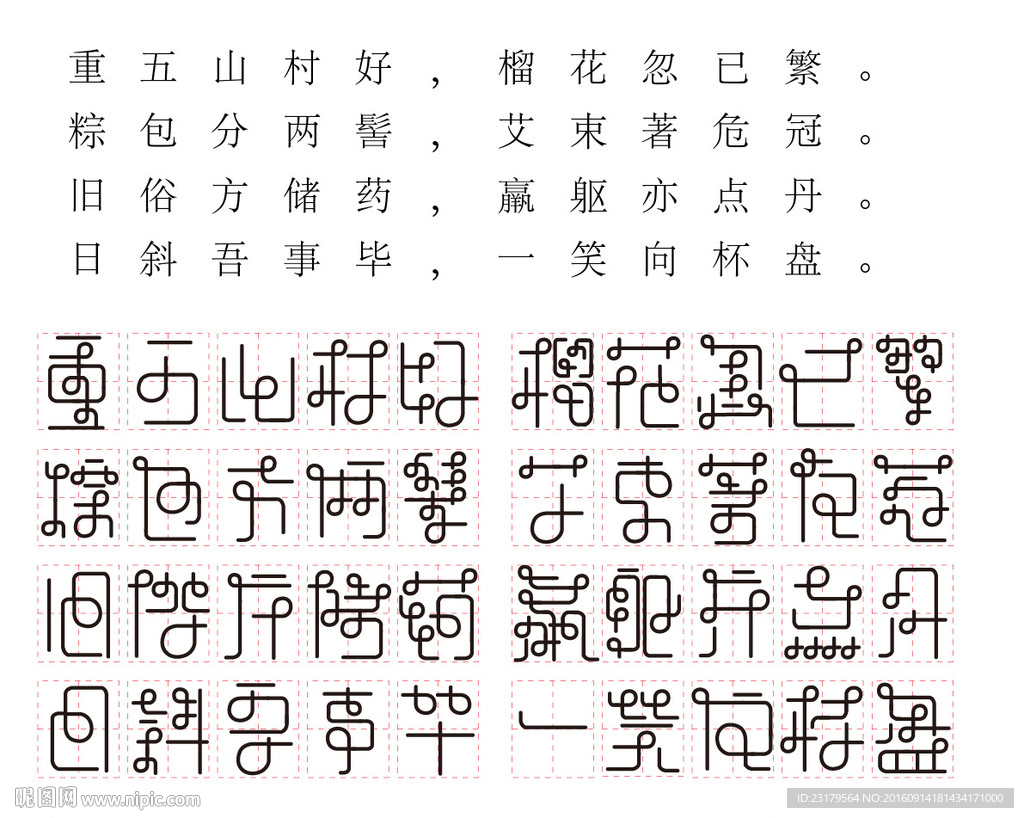 重五山村好，榴花忽已繁。
粽包分两髻，艾束著危冠。
旧俗方储药，羸躯亦点丹。
日斜吾事毕，一笑向杯盘。
重五山村好 榴花忽已繁
粽包分两髻 艾束著危冠
旧俗方储药 羸躯亦点丹
日斜吾事毕 一笑向杯盘
昵图网 www.nipic.com
ID:23179564 NO:20160914181434171000